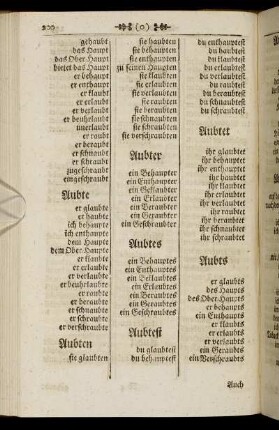 200
(0)
gehaubt
das Haupt
das Ober-Haupt
bietet das Haupt
er behaupt
er enthaupt
er klaubt
er erlaubt
er verlaubt
er beuhrlaubt
unerlaubt
er raubt
er beraubt
er schnaubt
er schraubt
zugeschraubt
eingeschraubt
Aubte
er glaubte
er haubte
ich behaupte
ich enthaupte
dem Haupte
dem Ober-Haupte
er klaubte
er erlaubte
er verlaubte
er beuhrlaubte
er raubte
er beraubte
er schnaubte
er schraubte
er verschraubte
Aubten
sie glaubten
sie haubten
sie behaupten
sie enthaupten
zu seinen Haupten
sie klaubten
sie erlaubten
sie verlaubten
sie raubten
sie beraubten
sie schnaubten
sie schraubten
sie verschraubten
Aubter
ein Behaupter
ein Enthaupter
ein Geklaubter
ein Erlaubter
ein Beraubter
ein Geraubter
ein Geschraubter
Aubtes
ein Behauptes
ein Enthauptes
ein Erlaubtes
ein Beraubtes
ein Geraubtes
ein Geschraubtes
Aubtest
du glaubtest
du behauptest
du enthauptest
du haubtest
du klaubtest
du erlaubtest
du verlaubtest
du raubtest
du beraubtest
du schnaubtest
du schraubtest
Aubtet
ihr glaubtet
ihr behauptet
ihr enthauptet
ihr haubtet
ihr klaubtet
ihr erlaubtet
ihr verlaubtet
ihr raubtet
ihr beraubtet
ihr schnaubtet
ihr schraubtet
Aubts
er glaubts
des Haupts
des Ober-Haupts
er behaupts
er enthaupts
er klaubts
er erlaubts
er verlaubts
ein Geraubts
ein Verschraubts
Auch